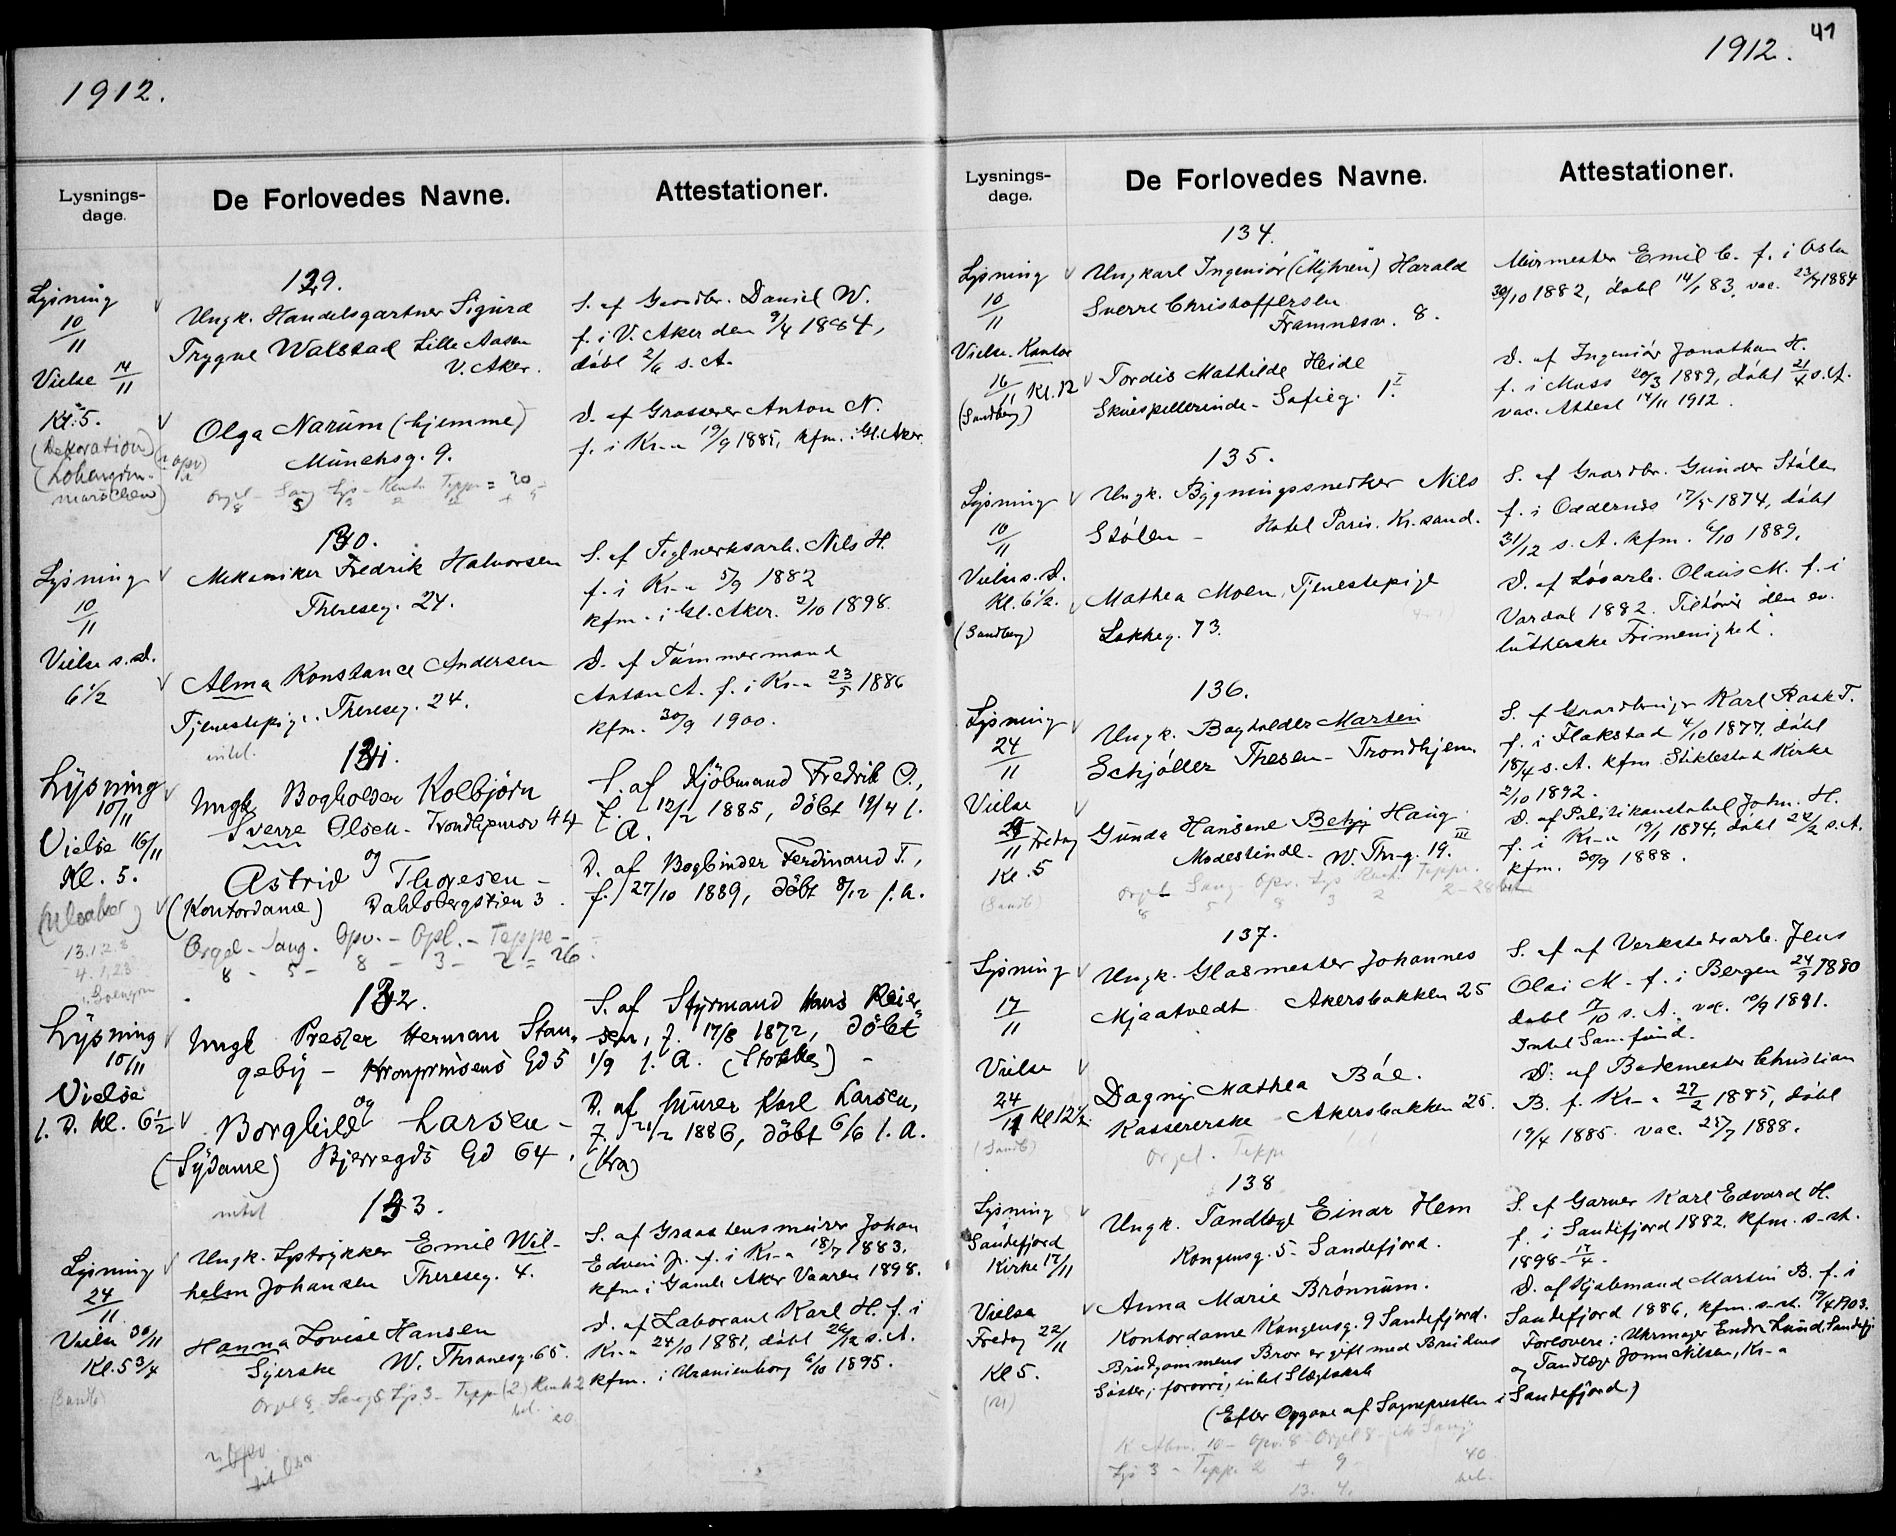 1912.
Lysnings-
dage.
De Forlovedes Navne.
Attestationer.
129.
Lysning
10/11
Vielse 14/11
Kl. 5.
(Dekoration)
(Lohengrin-
marschen)
Ungk. Handelsgartner Sigurd
Trygve Walstad Lille Aasen
V. Aker.
Olga Narum (hjemme)
Munchsg. 9.
Orgel - Sang Lys - Rent. Teppe = 20
8 5 3 2 2
S. af Gaardbr. Daniel W.
f. i V. Aker den 9/4 1884,
døbt 2/6 s. A.
D. af Grosserer Anton N.
f. i Kr.a 19/9 1885, kfm. i Gl. Aker.
130.
Lysning
10/11
Vielse s. d.
6 1/2
Mekaniker Fredrik Halvorsen
Thereseg. 24.
Alma Konstance Andersen
Tjenestepige. Thereseg. 24.
intet.
S. af Teglverksarb. Nils H.
f. i Kr.a 5/9 1882
kfm. i Gl. Aker. 2/10 1898.
D. af Tømmermand
Anton A. f. i Kr.a 23/5 1886
kfm. 30/9 1900.
131.
Lysning
10/11
Vielse 16/11
Kl. 5.
Ungk. Bogholder Kolbjørn
Sverre Olsen - Trondhjemsv 44
og
Astrid Thoresen -
(Kontordame) Dahlsbergstien 3.
Orgel - Sang - Opv. - Opl. - Teppe -
8 - 5 - 8 - 3 - 2 = 26
S. af Kjøbmand Fredrik O.,
f. 12/2 1885, døbt 19/4 s.
A.
D. af Bogbinder Ferdinand T.,
f. 27/10 1889, døbt 8/12 s. a.
132.
Lysning
10/11
Vielse
s. D. Kl. 6 1/2
Ungk Presser Herman Stan-
geby - Kronprinsens Gd 5
og
Borghild Larsen -
(Sydame) Bjerregds Gd 64.
intet
S. af Styrmand Hans Reier-
sen, f. 17/8 1872, døbt
1/9 s. A. (Stokke) -
D. af Murer Karl Larsen,
f. 21/2 1886, døbt 6/6 s. A.
(Kra)
133.
Lysning
24/11
Vielse 30/11
Kl. 5 3/4
(Sandb)
Ungk. Lystrykker Emil Wil-
helm Johansen Thereseg. 4.
Hanna Lovise Hansen
Syerske W. Thranesg. 65
Orgel 8 Sang 5 Lys 3 - Teppe (2) Rent 2
bet. 20
S. af Graastensmurer Johan
Edvin J. f. i Kr.a 18/7 1883.
kfm i Gamle Aker Vaaren 1898.
D. af Laborant Karl H. f. i
Kr.a 24/10 1881, døbt 26/12 s. A.
kfm. i Uranienborg 6/10 1895.
41
1912.
Lysnings-
dage.
De Forlovedes Navne.
Attestationer.
134.
Lysning
10/11
Vielse. Kontor
16/11 Kl. 12
(Sandberg)
Ungkarl Ingeniør (Myhren) Harald
Sverre Christoffersen
Framnesv. 8.
Tordis Mathilde Heide
Skuespillerinde - Sofieg. 1.I
Murmester Emil C. f. i Oslo
30/10 1882, døbt 14/1 83, vac. 23/4 1884
D. af Ingeniør Jonathan H.
f. i Moss 20/3 1889, døbt 21/4 s. A.
vac. Attest 14/11 1912.
135.
Lysning
10/11
Vielse s. D.
Kl. 6 1/2.
(Sandberg)
Ungk. Bygningssnedker Nils
Stølen - Hotel Paris. Kr.sand.
Mathea Moen, Tjenestepige
Lakkeg. 73.
S. af Gaardbr. Gunder Stølen
f. i Oddernes 17/5 1874, døbt
31/12 s. A. kfm. 6/10 1889.
D. af Løsarb. Olaus M. f. i
Vardal 1882. Tilhører den ev.
lutherske Frimenighed.
136.
Lysning
24/11
Vielse
29/11 Fredag
Kl. 5
(Sandb)
Ungk. Bogholder Martin
Schjøller Thesen - Trondhjem
Gunda Hansine Betzy Haug
Modestinde - W. Thr.g. 19.III
Orgel Sang Opv. Lys Rent. Teppe.
8 5 8 3 2 2 - 28 bet.
S. af Gaardbruger Karl Rask T.
f. i Flakstad 4/10 1877, døbt
18/4 s. A. kfm. Stiklestad Kirke
2/10 1892.
D. af Politikonstabel John. H.
f. i Kr.a 19/1 1874, døbt 24/2 s. A.
kfm. 30/9 1888.
137.
Lysning
17/11
Vielse
24/11 Kl 12 1/2
(Sandb)
Ungk. Glasmester Johannes
Mjaatvedt Akersbakken 25
Dagny Mathea Bøe.
Kassererske Akersbakken 25.
Orgel. Teppe
S. af af Verkstedsarb. Jens
Olai M. f. i Bergen 24/9 1880
døbt 17/10 s. A. vac. 10/9 1891.
Intet Samfund.
D. af Bademester Christian
B. f. Kr.a 27/2 1885, døbt
19/4 1885. vac. 25/7 1888.
138
Lysning
i
Sandefjord
Kirke 17/11
Vielse
Fredag 22/11
Kl 5.
Ungk. Tandlæge Einar Hem
Kongensg. 5 - Sandefjord.
Anna Marie Brønnum.
Kontordame Kongensg. 9 Sandefjord.
Brudgommens Bror er gift med Brudens
Søster; forøvrig intet Slægtskab
(Efter Opgave af Sognepresten i Sandefjord)
S. af Garver Karl Edvard H.
f. i Sandefjord 1882. kfm. s. st.
1898 - 17/4.
D. af Kjøbmand Martin B. f. i
Sandefjord 1886, kfm. s. st. 19/4 1903.
Forlovere: Uhrmager Endre Lund, Sandefj
og Tandlæge John Nilsen, Kr.a
Lys 3 - Teppe 2 + 9 - 40
bet.